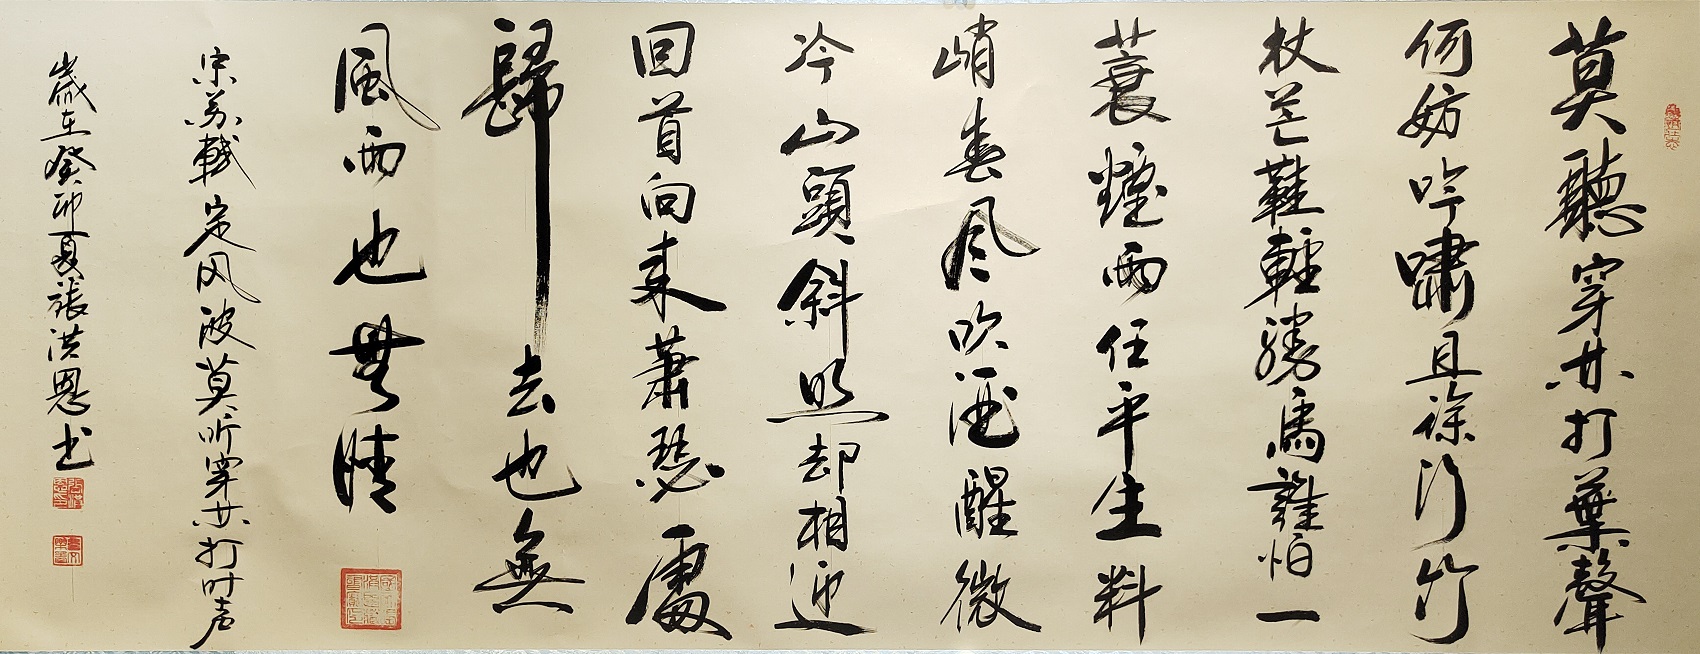 莫聽穿林打葉聲
何妨吟嘯且徐行竹
杖芒鞋輕勝馬誰怕一
蓑煙雨任平生料
峭春风吹酒醒微
冷山頭斜照却相迎
回首向来蕭瑟處
歸去也無
風雨也無晴
宋苏軾定风波莫听穿林打叶声
歲在癸卯夏張洪恩书